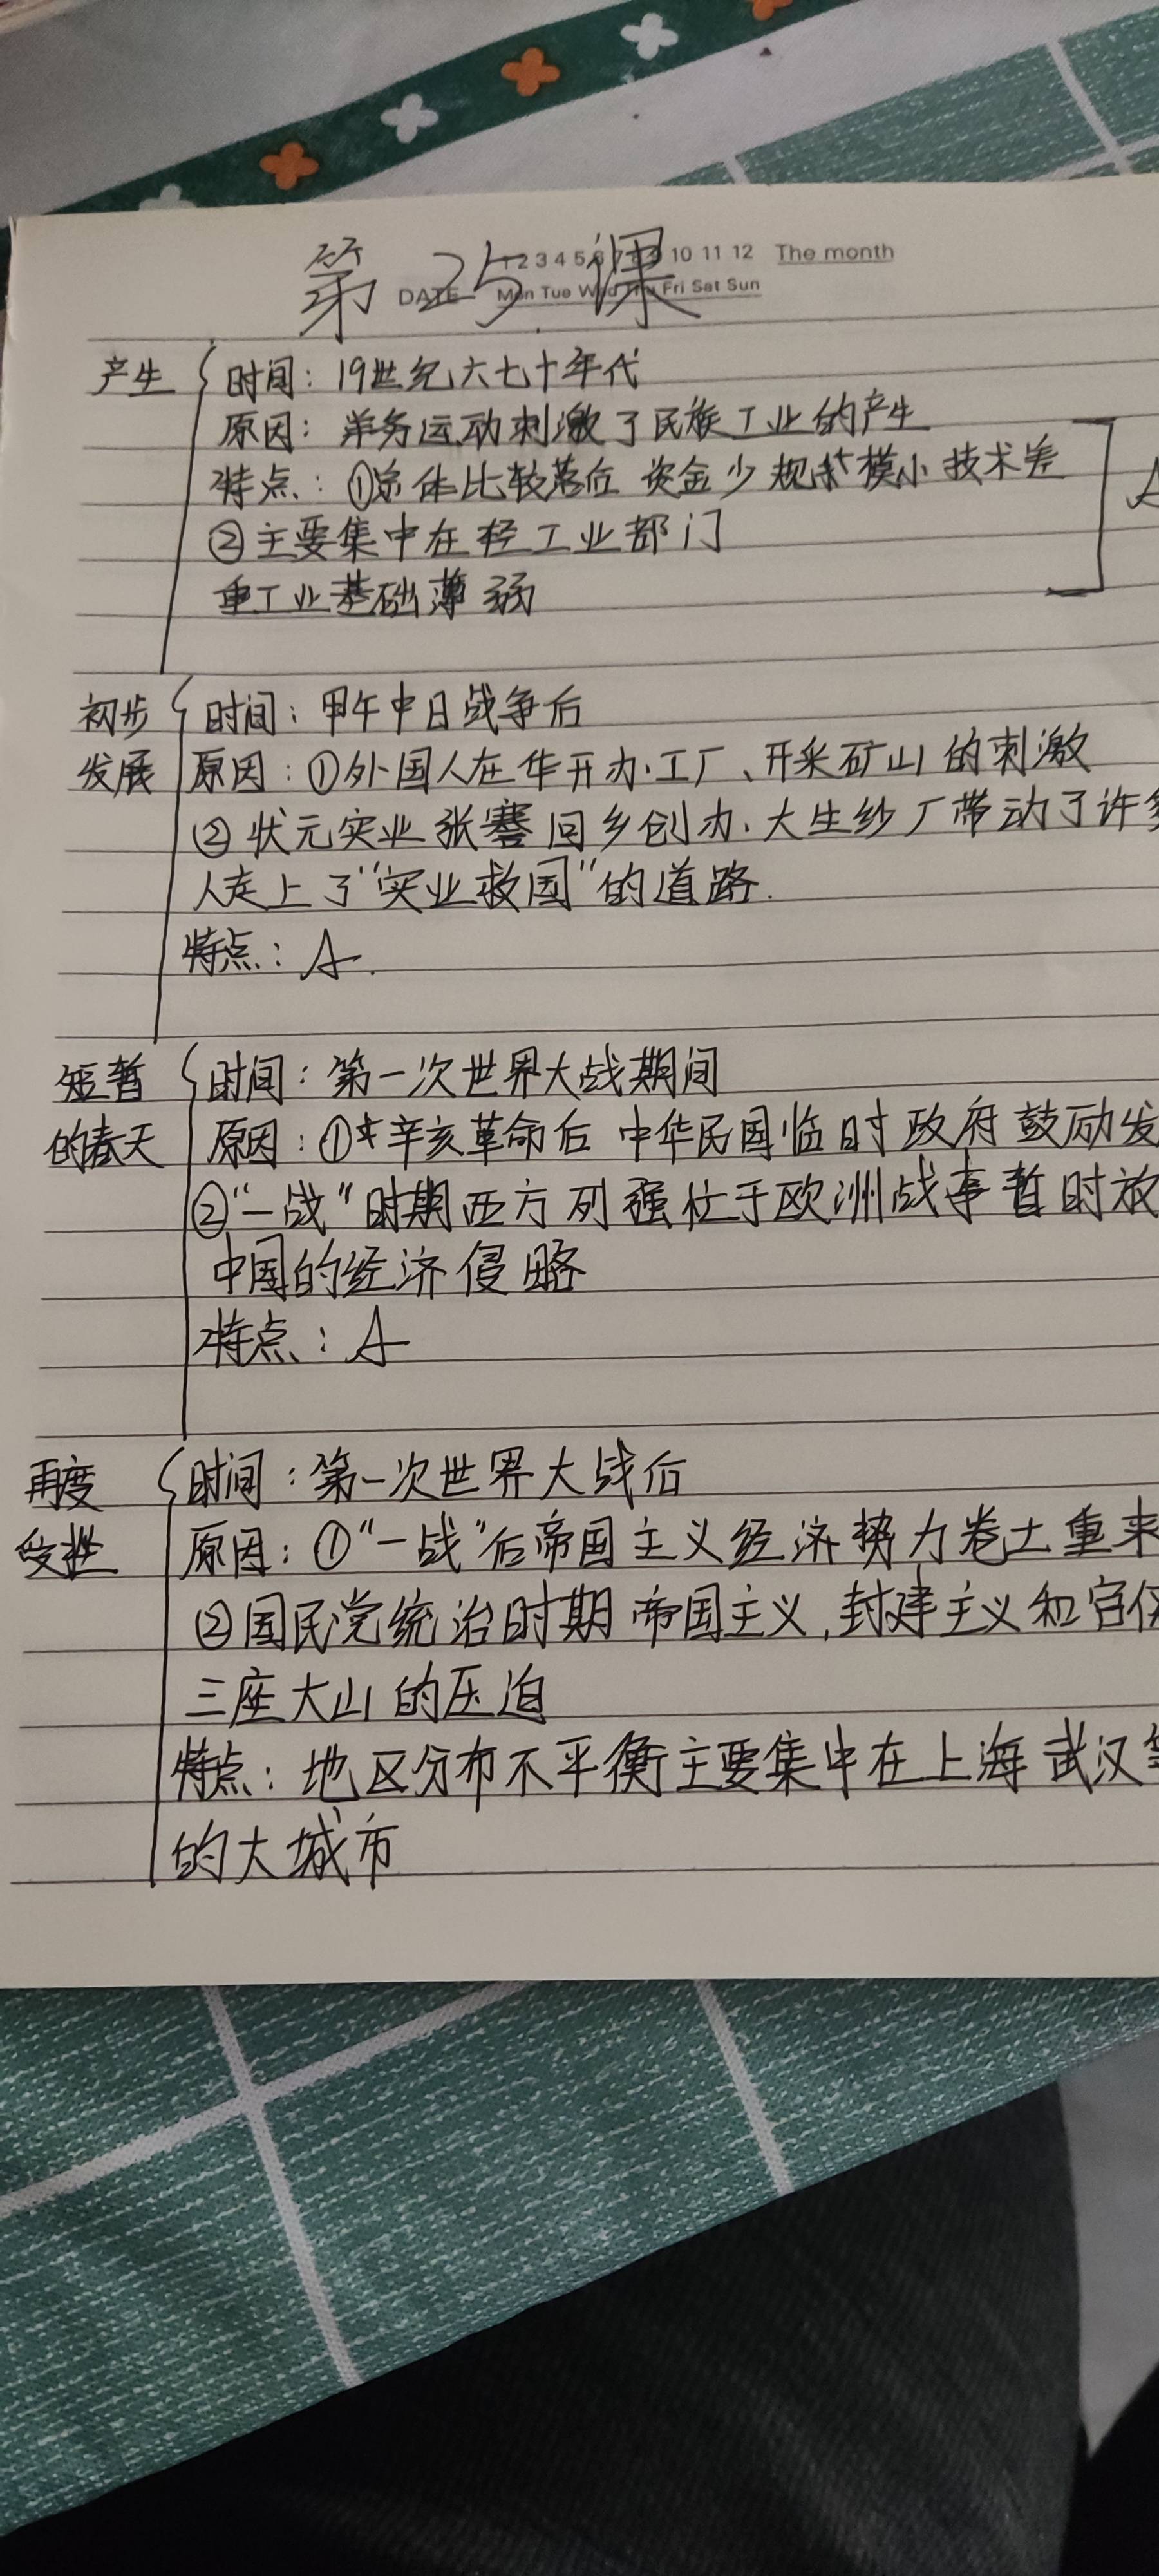 第25课
1 2 3 4 5 6 7 8 9 10 11 12 The month
DATE Mon Tue Wed Thu Fri Sat Sun
产生 时间：19世纪六七十年代
原因：洋务运动刺激了民族工业的产生
特点：①总体比较落后 资金少 规模小 技术差
A
②主要集中在轻工业部门
重工业基础薄弱
初步 时间：甲午中日战争后
发展 原因：①外国人在华开办工厂、开采矿山的刺激
②状元实业张謇回乡创办大生纱厂带动了许多
人走上了“实业救国”的道路.
特点：A.
短暂 时间：第一次世界大战期间
的春天 原因：①辛亥革命后 中华民国临时政府鼓励发
②“一战”时期西方列强忙于欧洲战事暂时放
中国的经济侵略
特点：A
再度 时间：第一次世界大战后
受挫 原因：①“一战”后帝国主义经济势力卷土重来
②国民党统治时期 帝国主义,封建主义和官僚
三座大山的压迫
特点：地区分布不平衡主要集中在上海武汉等
的大城市